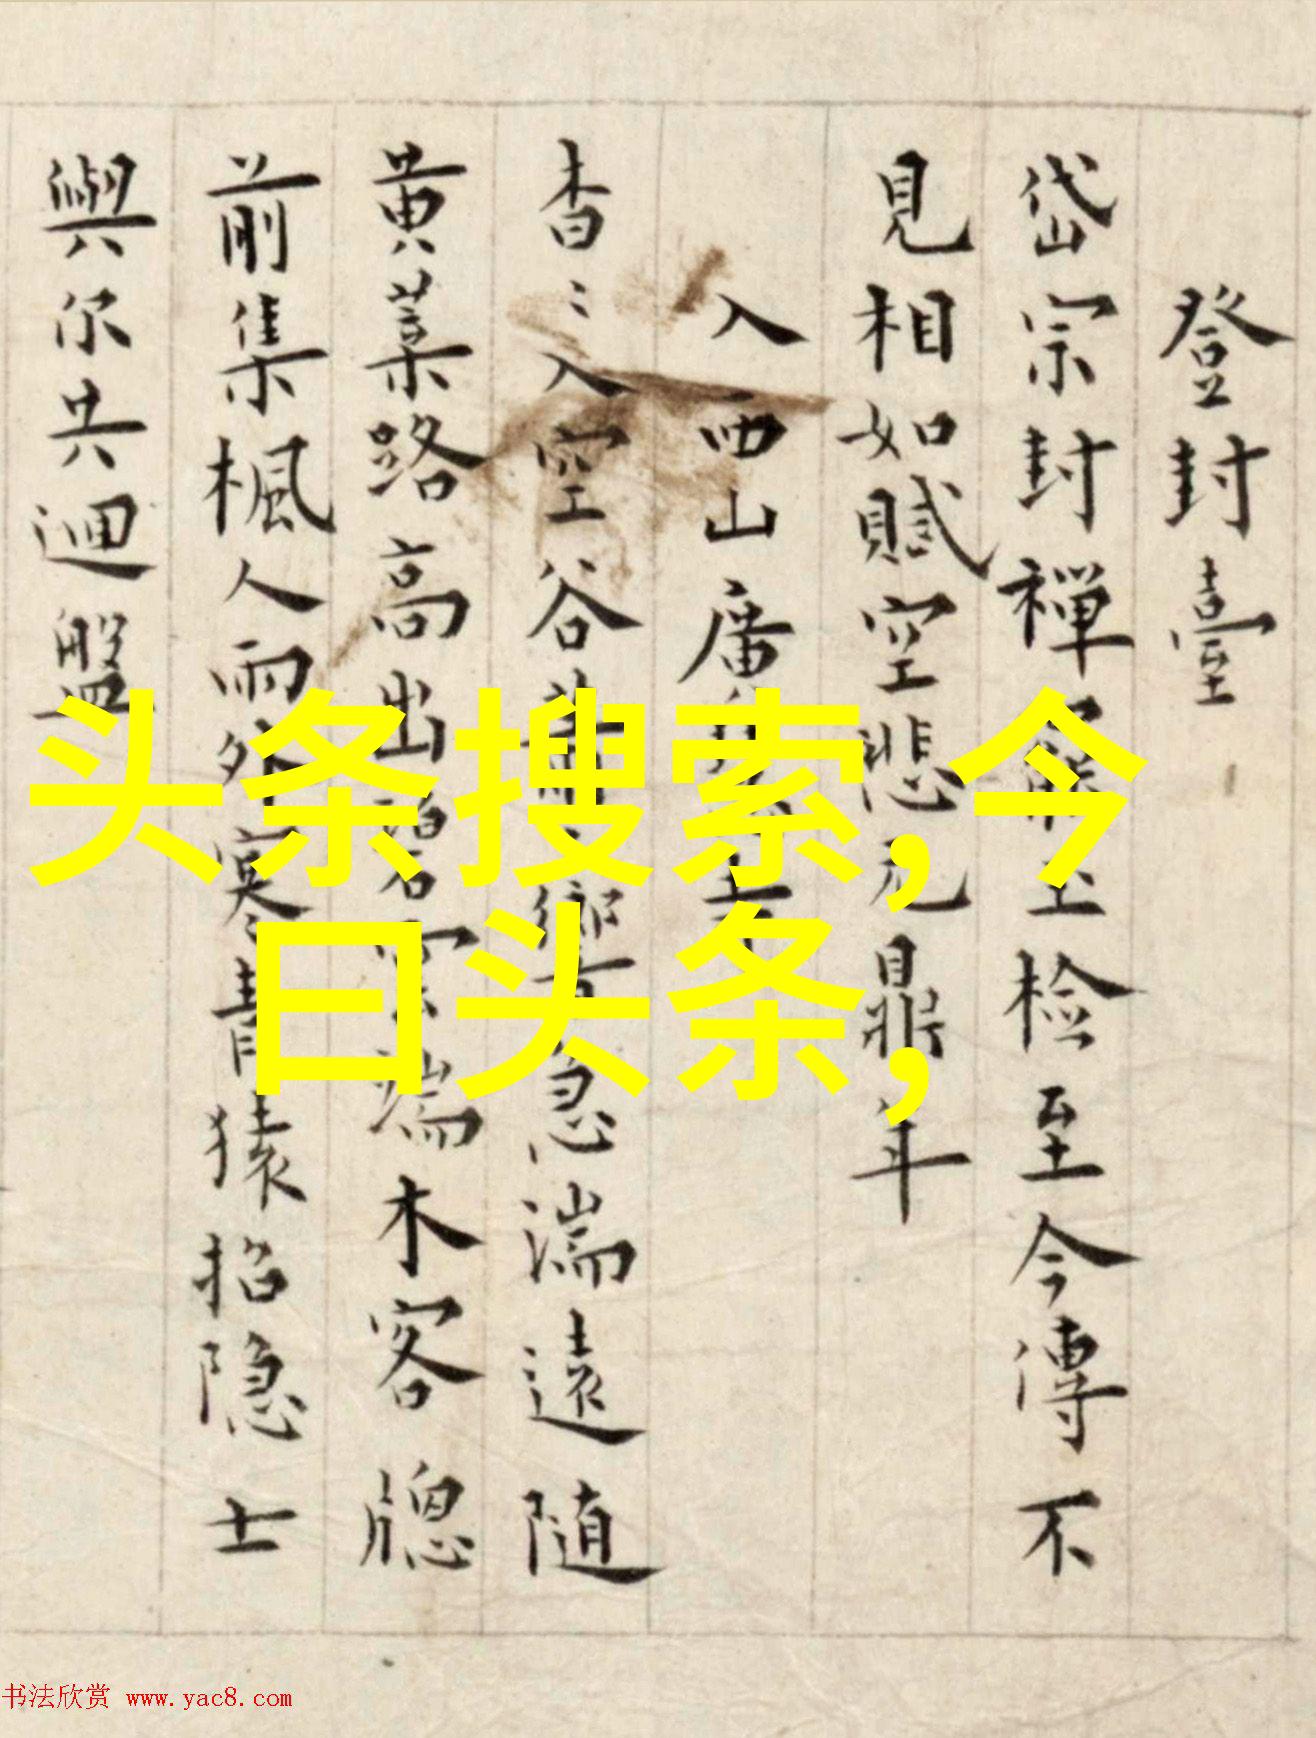 登封臺
岱宗封禪玉检至今傳不
見相如賦空悲元鼎年
入西山廣
杳〻入空谷響急湍遠隨
黄葉路高出碧雲端木客牕
前集楓人雨外寒青猿招隐士
與尔共迴盤
头条搜索,今
曰头条,
书法欣赏 www.yac8.com